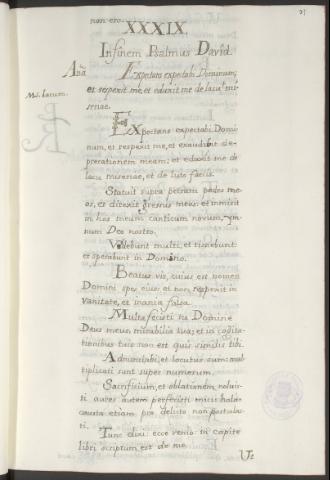 non ero.
XXXIX.
In finem Psalmus David.
Aña Expectans expectabi Dominum,
et respexit me, et eduxit me de lacu mi
seriae.
Ms. lacum.
Expectans expectabi Domi
num, et respexit me, et exaudibit de-
precationem meam; et eduxit me de
lacu miseriae, et de luto faecis.
Statuit supra petram pedes me-
os, et direxit gresus meos: et inmisit
in hos meum canticum novum, ym-
num Deo nostro.
Videbunt multi, et timebunt:
et sperabunt in Domino.
Beatus vir, cuius est nomen
Domini spes eius: et non respexit in
vanitate, et insania falsa.
Multa fecisti tu Domine
Deus meus mirabilia tua; et in cogita-
tionibus tuis non est quis similis tibi.
Adnuntiabi, et locutus sum: mul
tiplicati sunt super numerum.
Sacrificium, et oblationem noluis-
ti aures autem perfecisti mihi: holo-
causta etiam pro delicto non postulas-
ti.
Tunc dixi: ecce venio: in capite
libri scriptum est de me.
Ut